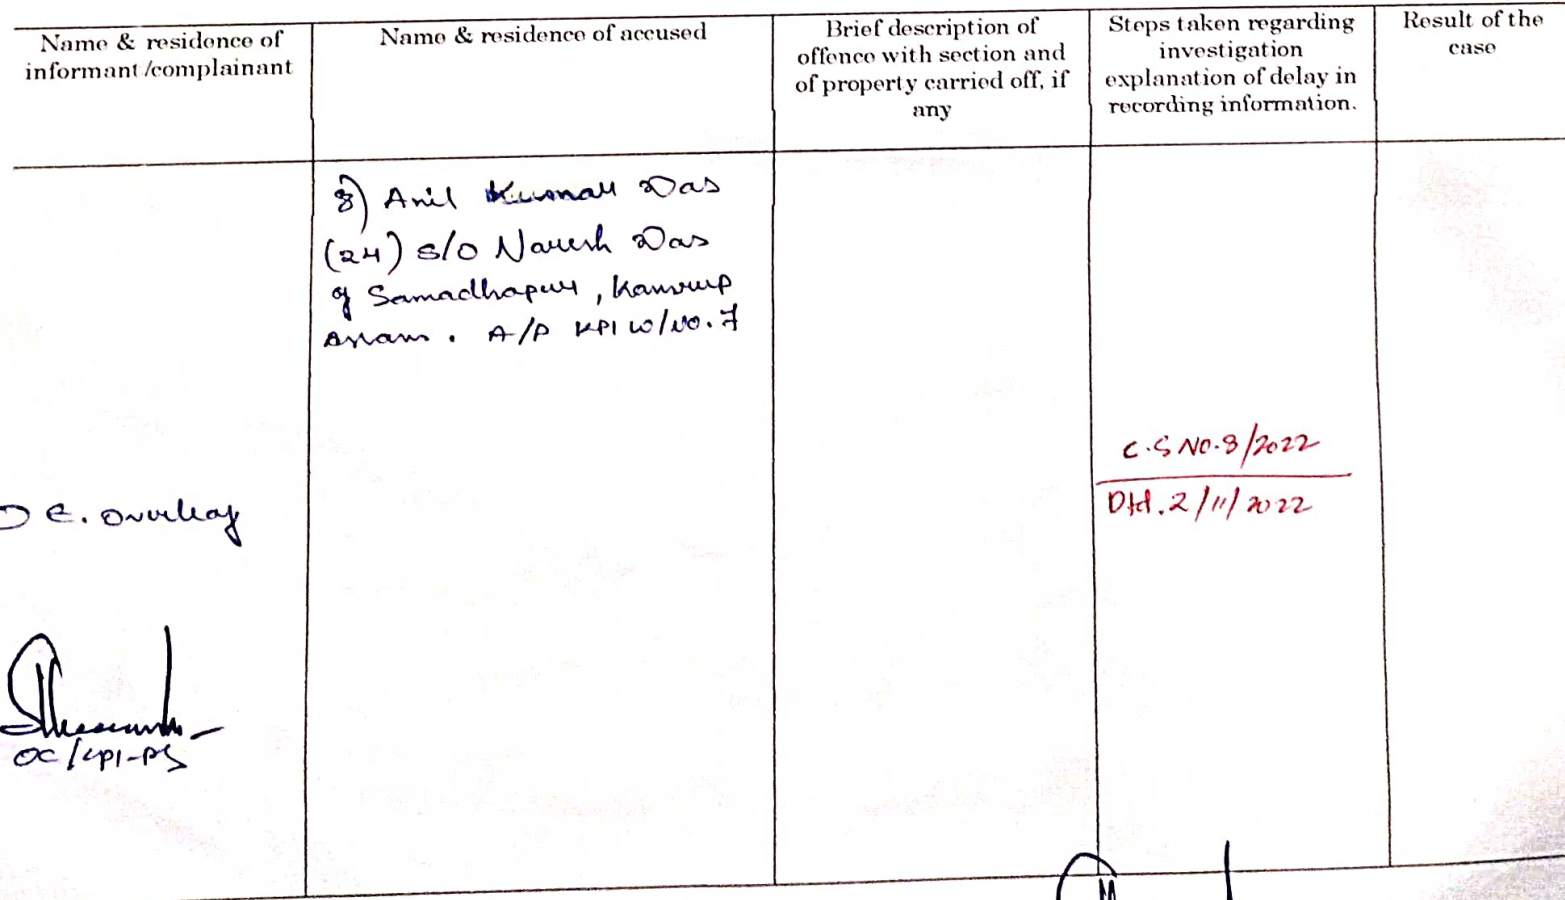 Name & residence of
informant/complainant
Name & residence of accused
Brief description of
offence with section and
of property carried off, if
any
Steps taken regarding
investigation
explanation of delay in
recording information.
Result of the
case
8) Anil Kumar Das
(24) S/O Naresh Das
of Samadhapur, Kamrup
Assam. A/P KPI W/No. 7
C.S NO. 8/2022
Dtd. 2/11/2022
E.
OC/KPI-PS